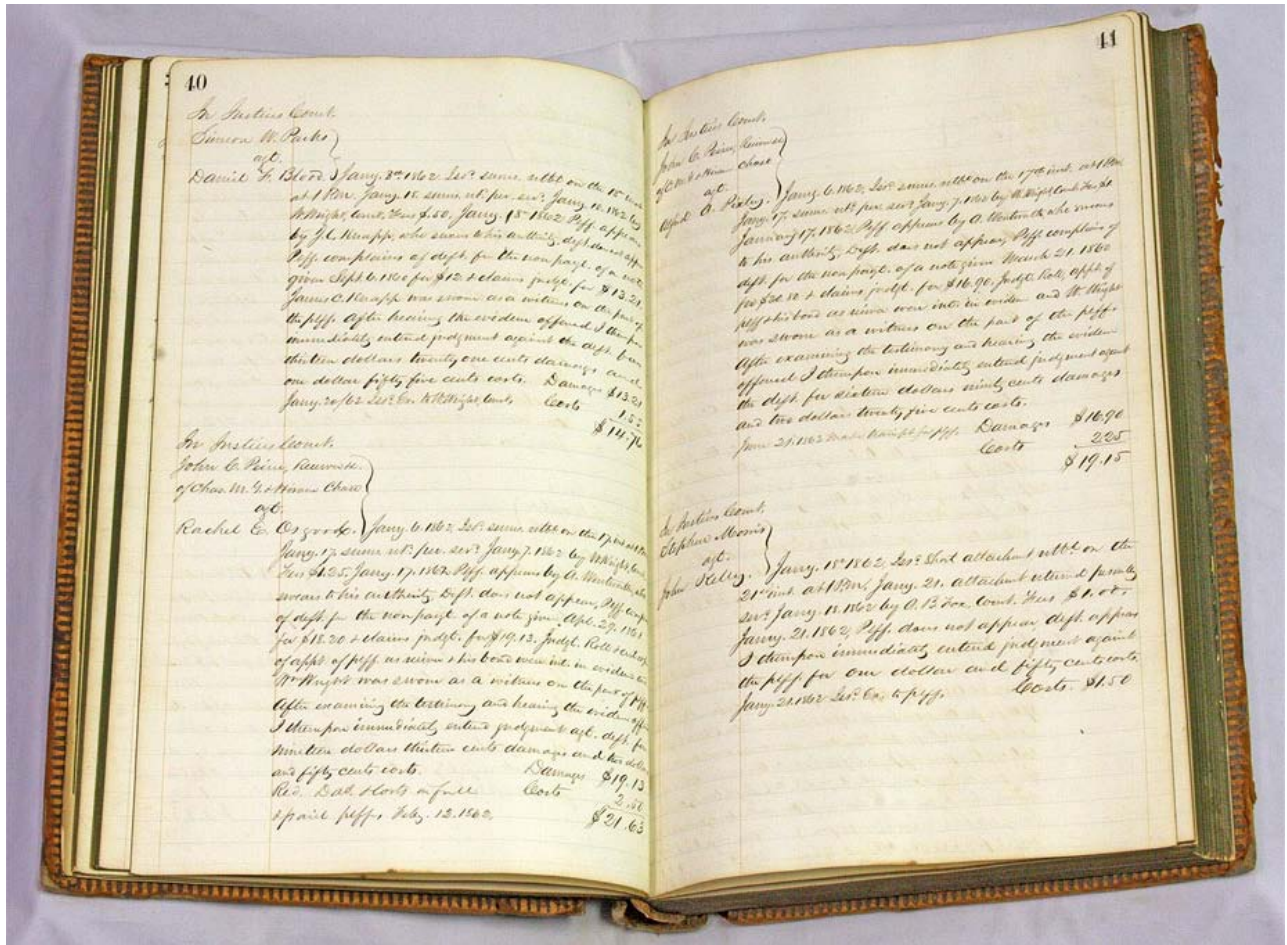 40
In Justices Court.
Simeon W. Parks
agt.
Daniel F. Blood. Jany. 8th 1862. Isd. sums. rtble on the 15
at 1 P.M. Jany. 15 sums. rtd. per. serd. Jany. 10. 1862 by
W. Wright, Const. Fees $.50. Jany. 15th 1862. Plff. appears
by J. C. Knapp, who swears to his authority, deft. does not
Plff. complains of deft. for the non payt. of a note
given Sept. 6. 1860 for $12 & claims judgt. for $13.21
James C. Knapp was sworn as a witness on the part of
the plff. After hearing the evidence offered I
immediately entered judgment against the deft. for
thirteen dollars twenty one cents damages and
one dollar fifty five cents costs. Damages $13.21
Jany. 20/62 Isd. Ex. to W. Wright, Const. Costs 1.55
$14.76
In Justices Court.
John C. Peirce,
of Chas. M. & Hiram Chase
agt.
Rachel E. Osgood. Jany. 6. 1862. Isd. sums. rtble on the 17. inst. at 1
Jany. 17. sums. rtd. per. serd. Jany. 7. 1862 by W. Wright, Const.
Fees $1.25. Jany. 17. 1862 Plff. appears by A.
swears to his authority. Deft. does not appear, Plff.
of deft. for the non payt. of a note given Apl. 29. 
for $18.20 & claims judgt. for $19.13. Judgt. Roll
of appt. of plff. as & his bond were int. in evidence
Wm. Wright was sworn as a witness on the part of plff.
After examining the testimony and hearing the evidence
I thereupon immediately entered judgment agt. deft. for
nineteen dollars thirteen cents damages and two dollars
and fifty cents costs. Damages $19.13
Red. Dam & Costs in full Costs 2.50
& paid plff. Feby. 12. 1862. $21.63
41
In Justices Court.
John C. Peirce,
of C. M. & Hiram Chase
agt.
A. Pixley. Jany. 6. 1862, Isd. sums. rtble on the 17th inst. at 1 P.M.
Jany. 17. sums. rtd. per. serd. Jany. 7. 1862 by W. Wright Const. Fees
January 17, 1862. Plff. appears by A. who swears
to his authority. Deft. does not appear, Plff. complains of
deft. for the non payt. of a note given March 21. 1860
for & claims judgt. for $16.90. Judgt. Roll, appt. of
plff. & his bond as were int. in eviden and W. Wright
was sworn as a witness on the part of the plff.
After examining the testimony and hearing the eviden
offered I thereupon immediately entered judgment against
the deft. for sixteen dollars ninety cents damages
and two dollars twenty five cents costs.
June 21. 1862 made transpt. for plff. Damages $16.90
Costs 2.25
$19.15
In Justices Court.
Stephen Morris
agt.
John Kelley. Jany. 18th 1862, Isd. Short attachment rtble on the
21st inst. at 1 P.M. Jany. 21. attachment returned personally
serd. Jany. 18. 1862 by A. B. Fox, Const. Fees $1.00.
Jany. 21. 1862, Plff. does not appear deft. appears
I thereupon immediately entered judgment against
the plff. for one dollar and fifty cents costs.
Jany. 21. 1862 Isd. Ex. to plff. Costs. $1.50